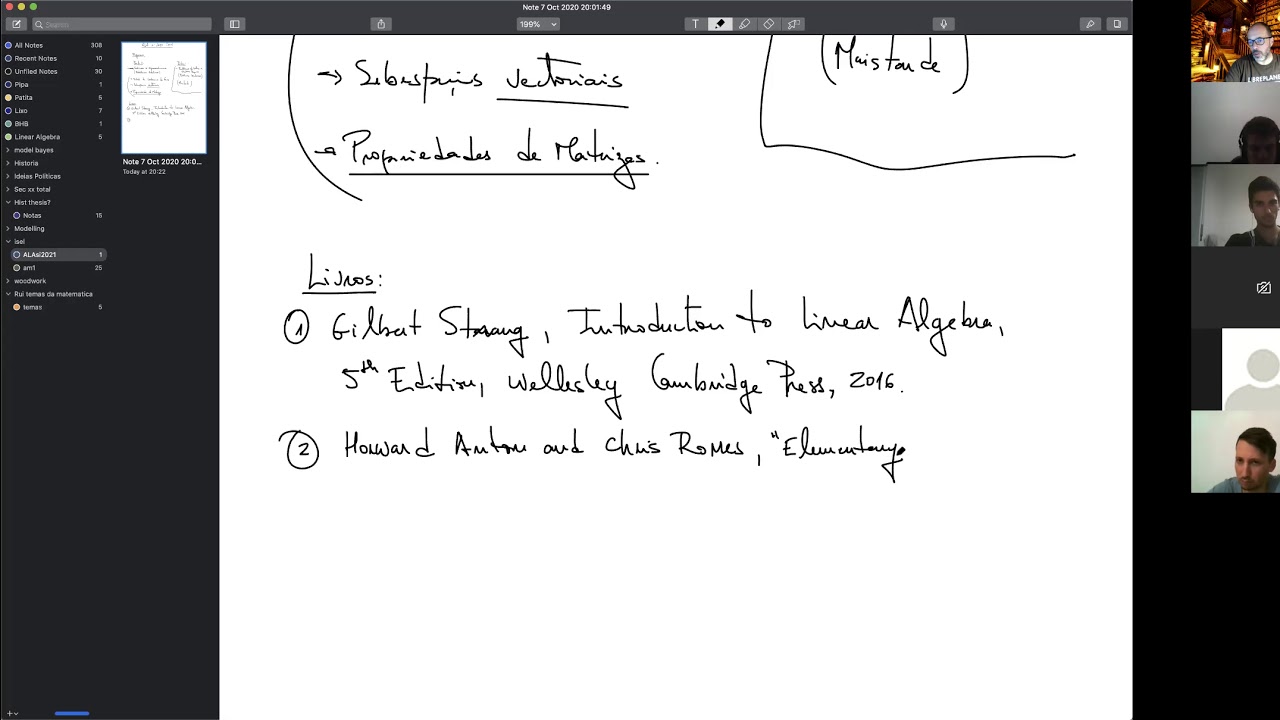 Note 7 Oct 2020 20:01:49
Search
199%
T
All Notes 308
Recent Notes 10
Unfiled Notes 30
Pipa 1
Patita 6
Lixo 7
BHB 1
Linear Algebra 5
model bayes
Historia
Ideias Políticas
Sec xx total
Hist thesis?
Notas 15
Modelling
isel
ALAsi2021 1
am1 25
woodwork
Rui temas da matematica
temas 5
Note 7 Oct 2020 20:0...
Today at 20:22
→ Subespaços vectoriais
→ Propriedades de Matrizes.
(Mais tarde)
Livros:
① Gilbert Strang, Introduction to Linear Algebra,
5th Edition, Wellesley Cambridge Press, 2016.
② Howard Anton and Chris Rorres, "Elementary